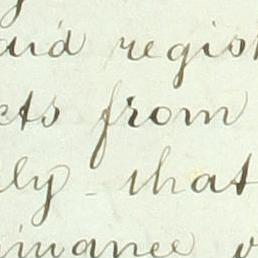 aid regist
cts from
ly that
inance